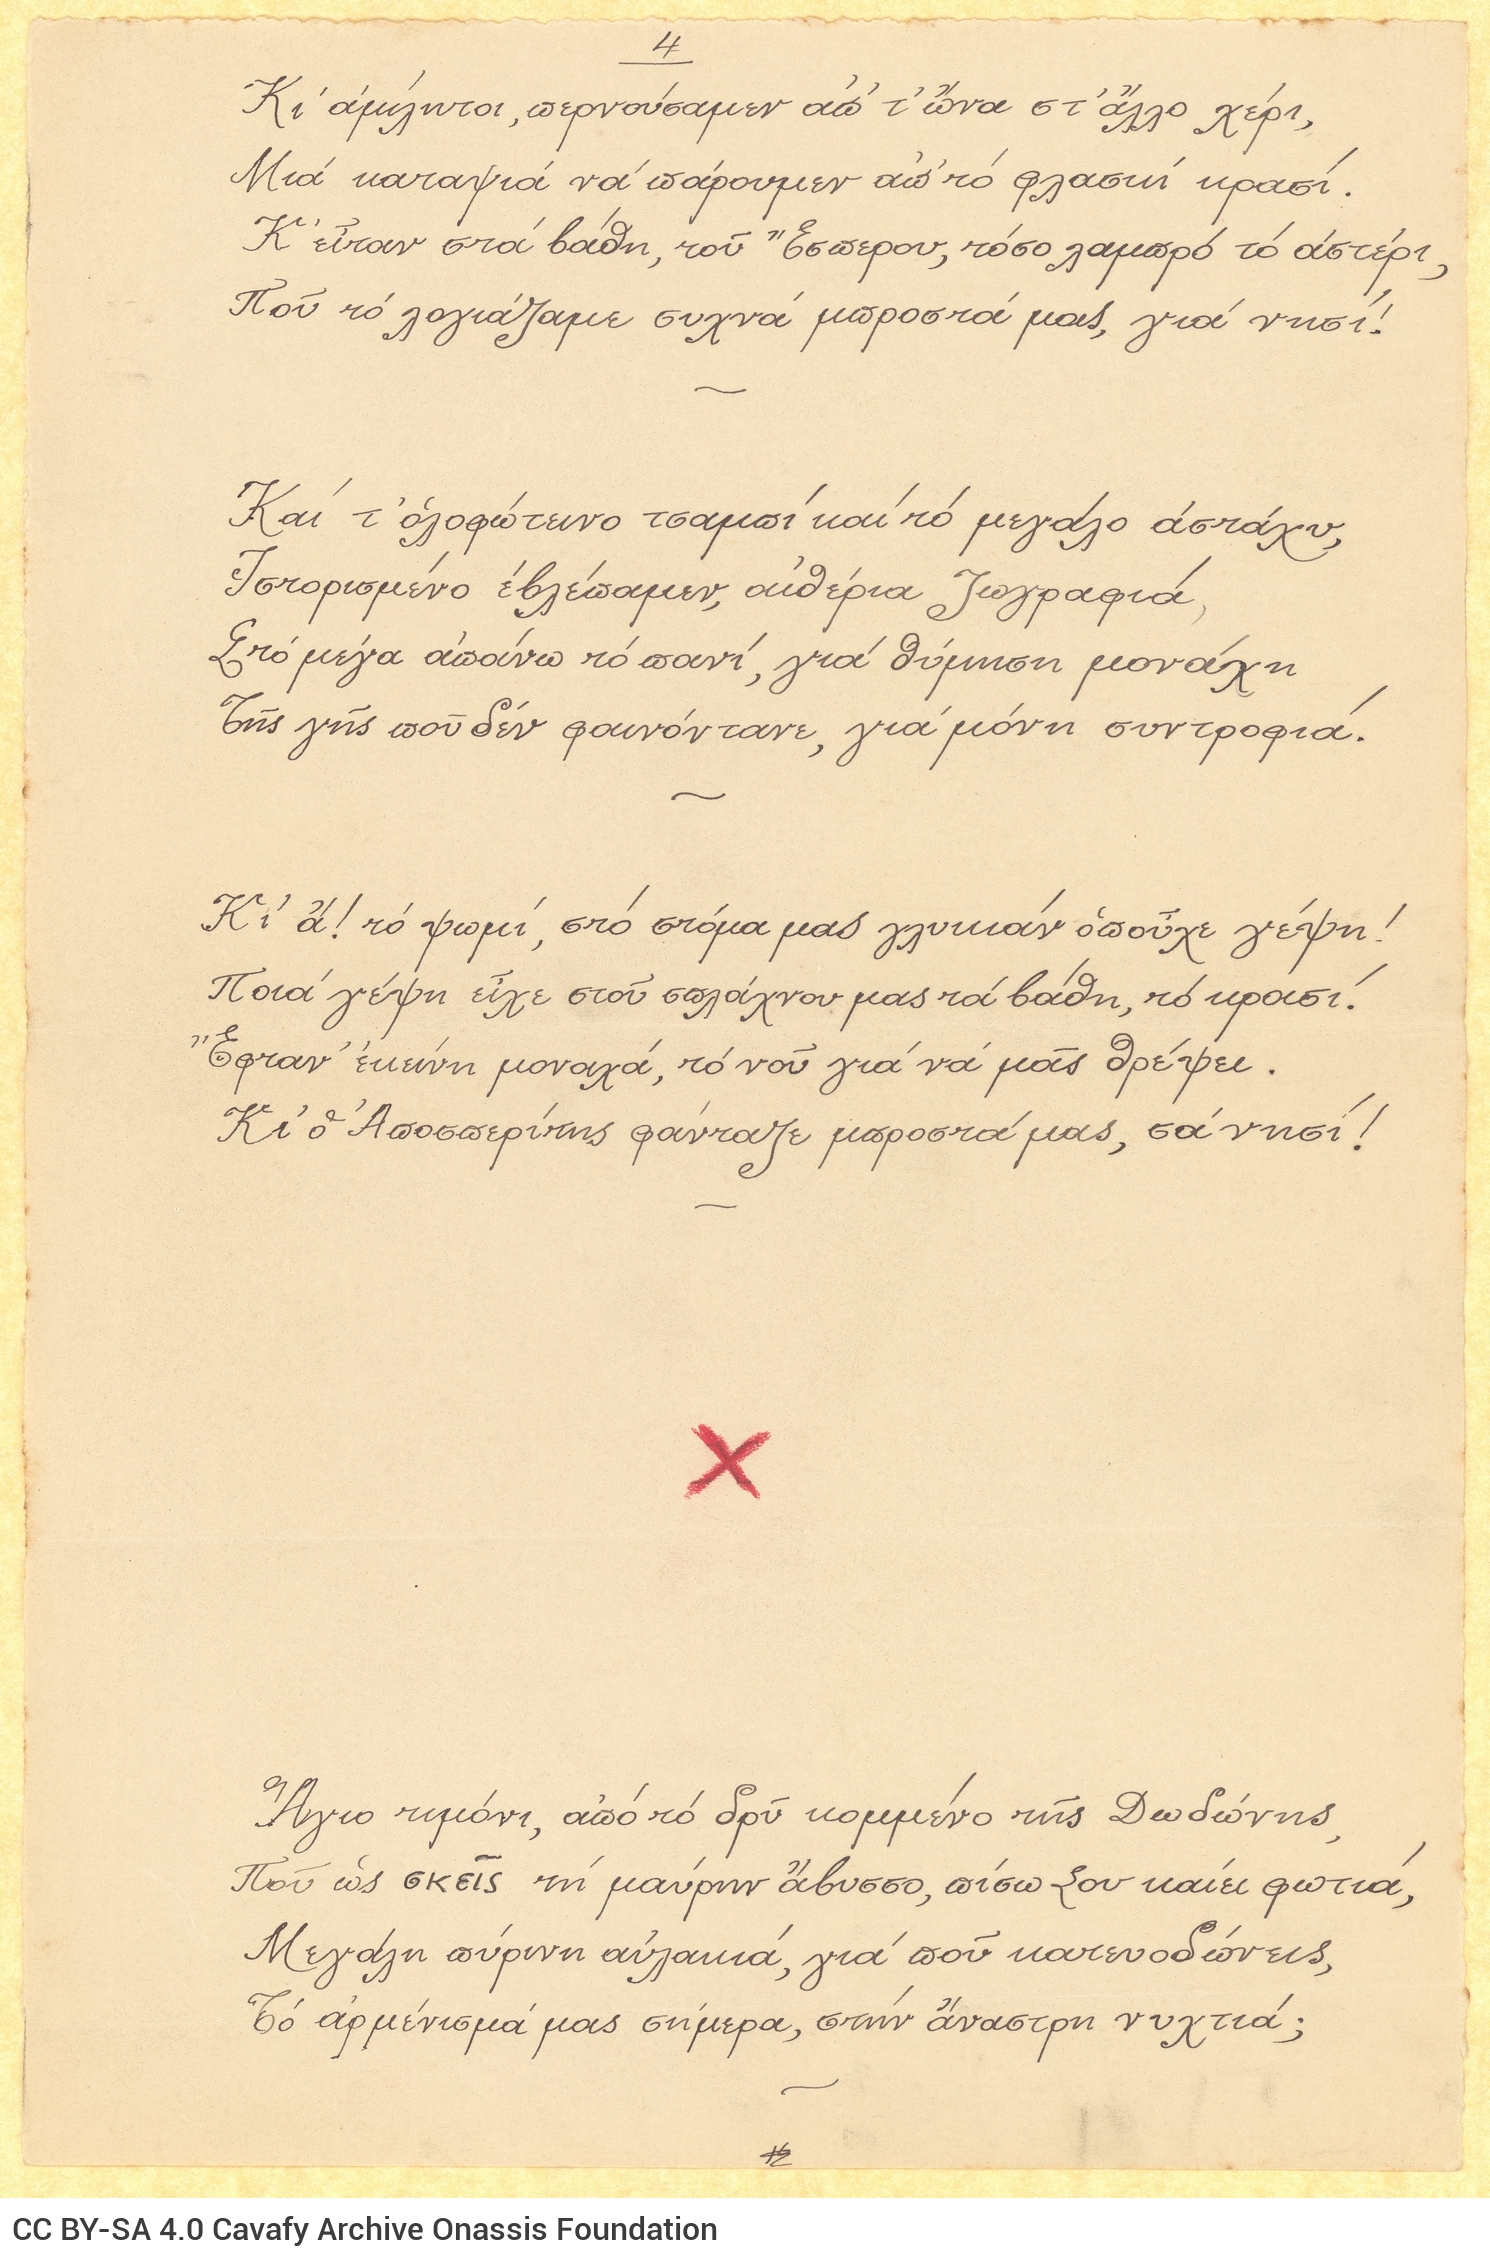 4
Κι' ἀμίλητοι, περνούσαμεν ἀπ' τ' ὥνα στ' ἄλλο χέρι,
Μιά καταψιά νά πάρουμεν ἀπ' τό φλασκί κρασί.
Κ' εἶταν στά βάθη, τοῦ Ἕσπερου, τόσο λαμπρό τό ἀστέρι,
Ποῦ τό λογιάζαμε συχνά μπροστά μας, γιά νησί!
Καί τ' ὁλοφώτεινο τσαμπί καί τό μεγάλο ἀστάχυ,
Ἱστορισμένο ἐβλέπαμεν, αἰθέρια ζωγραφιά,
Στό μέγα ἀπάνω τό πανί, γιά θύμηση μονάχη
Τῆς γῆς ποῦ δέν φαινόντανε, γιά μόνη συντροφιά.
Κι' ἄ! τό ψωμί, στό στόμα μας γλυκιάν ὁποὖχε γέψη!
Ποιά γέψη εἶχε στοῦ σπλάχνου μας τά βάθη, τό κρασί.
Ἔφταν' ἐκείνη μοναχά, τό νοῦ γιά νά μᾶς θρέψει.
Κι' ὁ Ἀποσπερίτης φάνταζε μπροστά μας, σά νησί!
Ἅγιο τιμόνι, ἀπό τό δρῦ κομμένο τῆς Δωδώνης,
Ποῦ ὡς σκεῖς τή μαύρην ἄβυσσο, πίσω Σου καίει φωτιά,
Μεγάλη πύρινη αὐλακιά, γιά ποῦ κατευοδώνεις,
Τό ἀρμένισμά μας σήμερα, στήν ἄναστρη νυχτιά;
CC BY-SA 4.0 Cavafy Archive Onassis Foundation